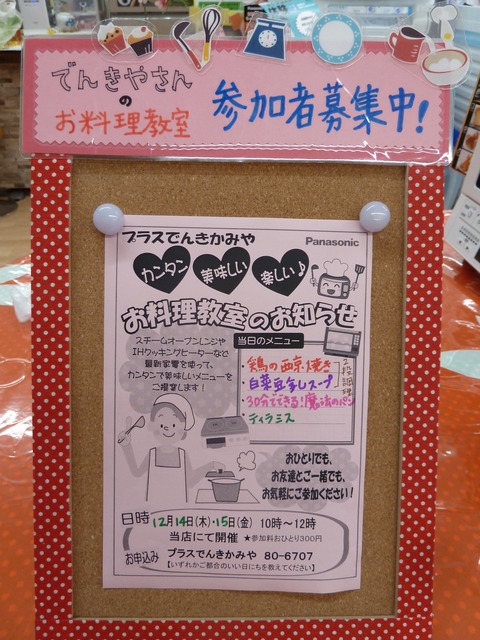 でんきやさん
の
お料理教室
参加者募集中!
プラスでんきかみや
Panasonic
カンタン 美味しい 楽しい♪
お料理教室のお知らせ
スチームオーブンレンジや
IHクッキングヒーターなど
最新家電を使って、
カンタンで美味しいメニューを
ご提案します!
当日のメニュー
・鶏の西京焼き
・白菜豆乳しスープ
2段調理
・30分でできる!魔法のパン
・ティラミス
おひとりでも、
お友達とご一緒でも、
お気軽にご参加ください!
日時 12月14日(木)・15日(金) 10時~12時
当店にて開催 ★参加料おひとり300円
お申込み プラスでんきかみや 80-6707
【いずれかご都合のいい日にちを教えてください】